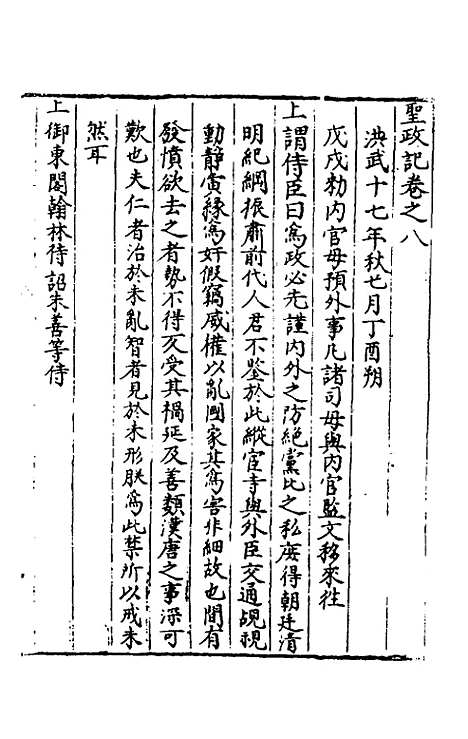 聖政記卷之八
洪武十七年秋七月丁酉朔
戊戌勑內官毋預外事凡諸司毋與內官監文移來往
上謂侍臣曰爲政必先謹內外之防絶黨比之私庶得朝廷清
明紀綱振肅前代人君不鑒於此縱宦寺與外臣交通覘視
動靜夤緣爲奸假竊威權以亂國家其爲害非細故也間有
發憤欲去之者勢不得行反受其禍延及善類漢唐之事深可
歎也夫仁者治於未亂智者見於未形朕爲此禁所以戒未
然耳
上御東閣翰林待詔朱善等侍